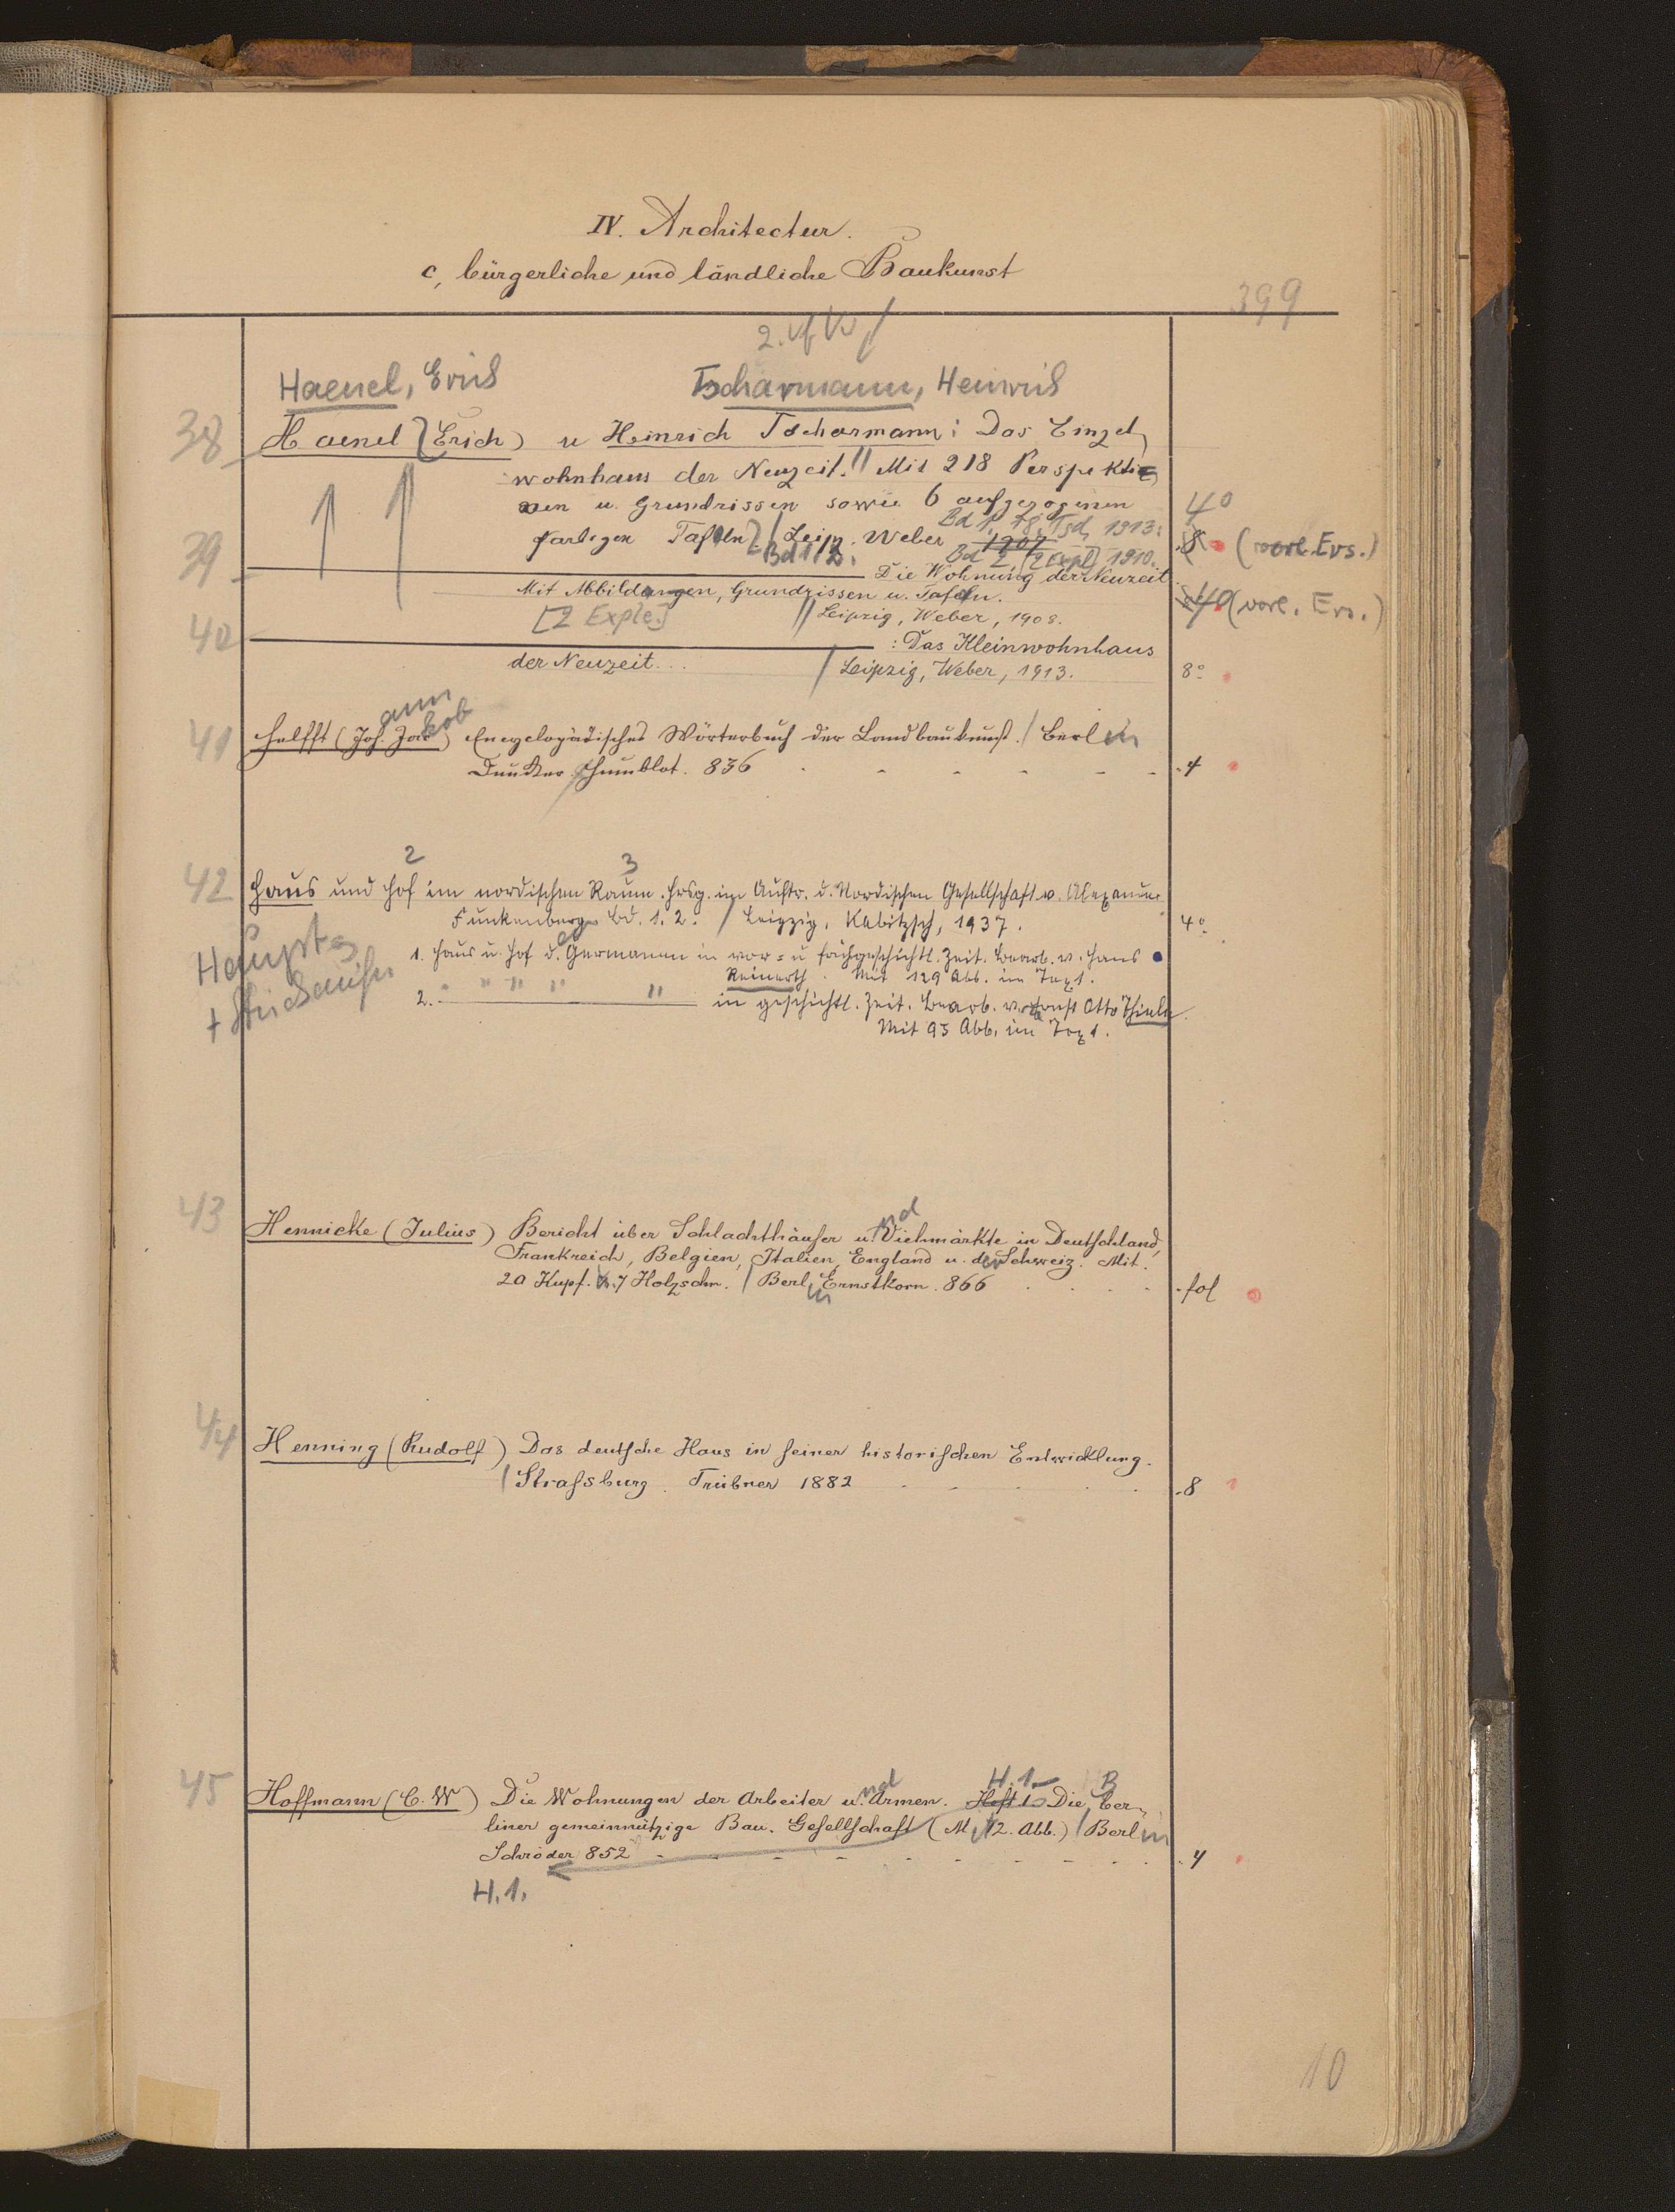 IV. Architectur.
c, bürgerliche und ländliche Baukunst
399
2. Vf
Haenel, Erich Tscharmann, Heinrich
38 Haenel (Erich) u Heinrich Tscharmann: Das Einzel
wohnhaus der Neuzeit. Mit 218 Perspekti
ven u. Grundrissen sowie 6 aufgezogenen 4°
Bd 1, 18. Tsd, 1913.
farbigen Tafeln / Leipz. Weber 1907 8 (vorl. Ers.)
Bd 1. 2. Bd 2 [2 Expl] 1910.
39 Die Wohnung der Neuzeit
Mit Abbildungen, Grundrissen u. Tafeln. 4° (vorl. Ers.)
[2 Exple.] // Leipzig, Weber, 1908.
40 : Das Kleinwohnhaus
der Neuzeit... / Leipzig, Weber, 1913. 8°
ann kob
41 Helfft (Joh. Jac) Encyclopädisches Wörterbuch der Landbaukunst. / Berlin
Duncker Humblot. 836 4
2 3
42 Haus und Hof im nordischen Raum. Hrsg. im Auftr. d. Nordischen Gesellschaft v. Alexander
Funkenberg Bd. 1. 2. / Leipzig, Kabitzsch, 1937. 4°
Haupt=
1. Haus u. Hof d. Germanen in vor= u frühgeschichtl. Zeit. Bearb. v. Hans
Reinerth. Mit 129 Abb. im Text.
2. " " " " " in geschichtl. Zeit. Bearb. v. Ernst Otto Thiele.
Mit 95 Abb. im Text.
nd
43 Hennicke (Julius) Bericht über Schlachthäuser u. Viehmärkte in Deutschland,
Frankreich, Belgien, Italien, England u. der Schweiz. Mit.
20 Kupf. u. 7 Holzschn. / Berlin Ernst Korn. 866 fol
44 Henning (Rudolf) Das deutsche Haus in seiner historischen Entwicklung.
/ Strassburg. Trübner 1882 8
nd H. 1. B
45 Hoffmann (C. W) Die Wohnungen der Arbeiter u. Armen. Heft 1. Die ber
liner gemeinnützige Bau. Gesellschaft (M. 12. Abb.) / Berlin
Schröder 852 4
H. 1.
10